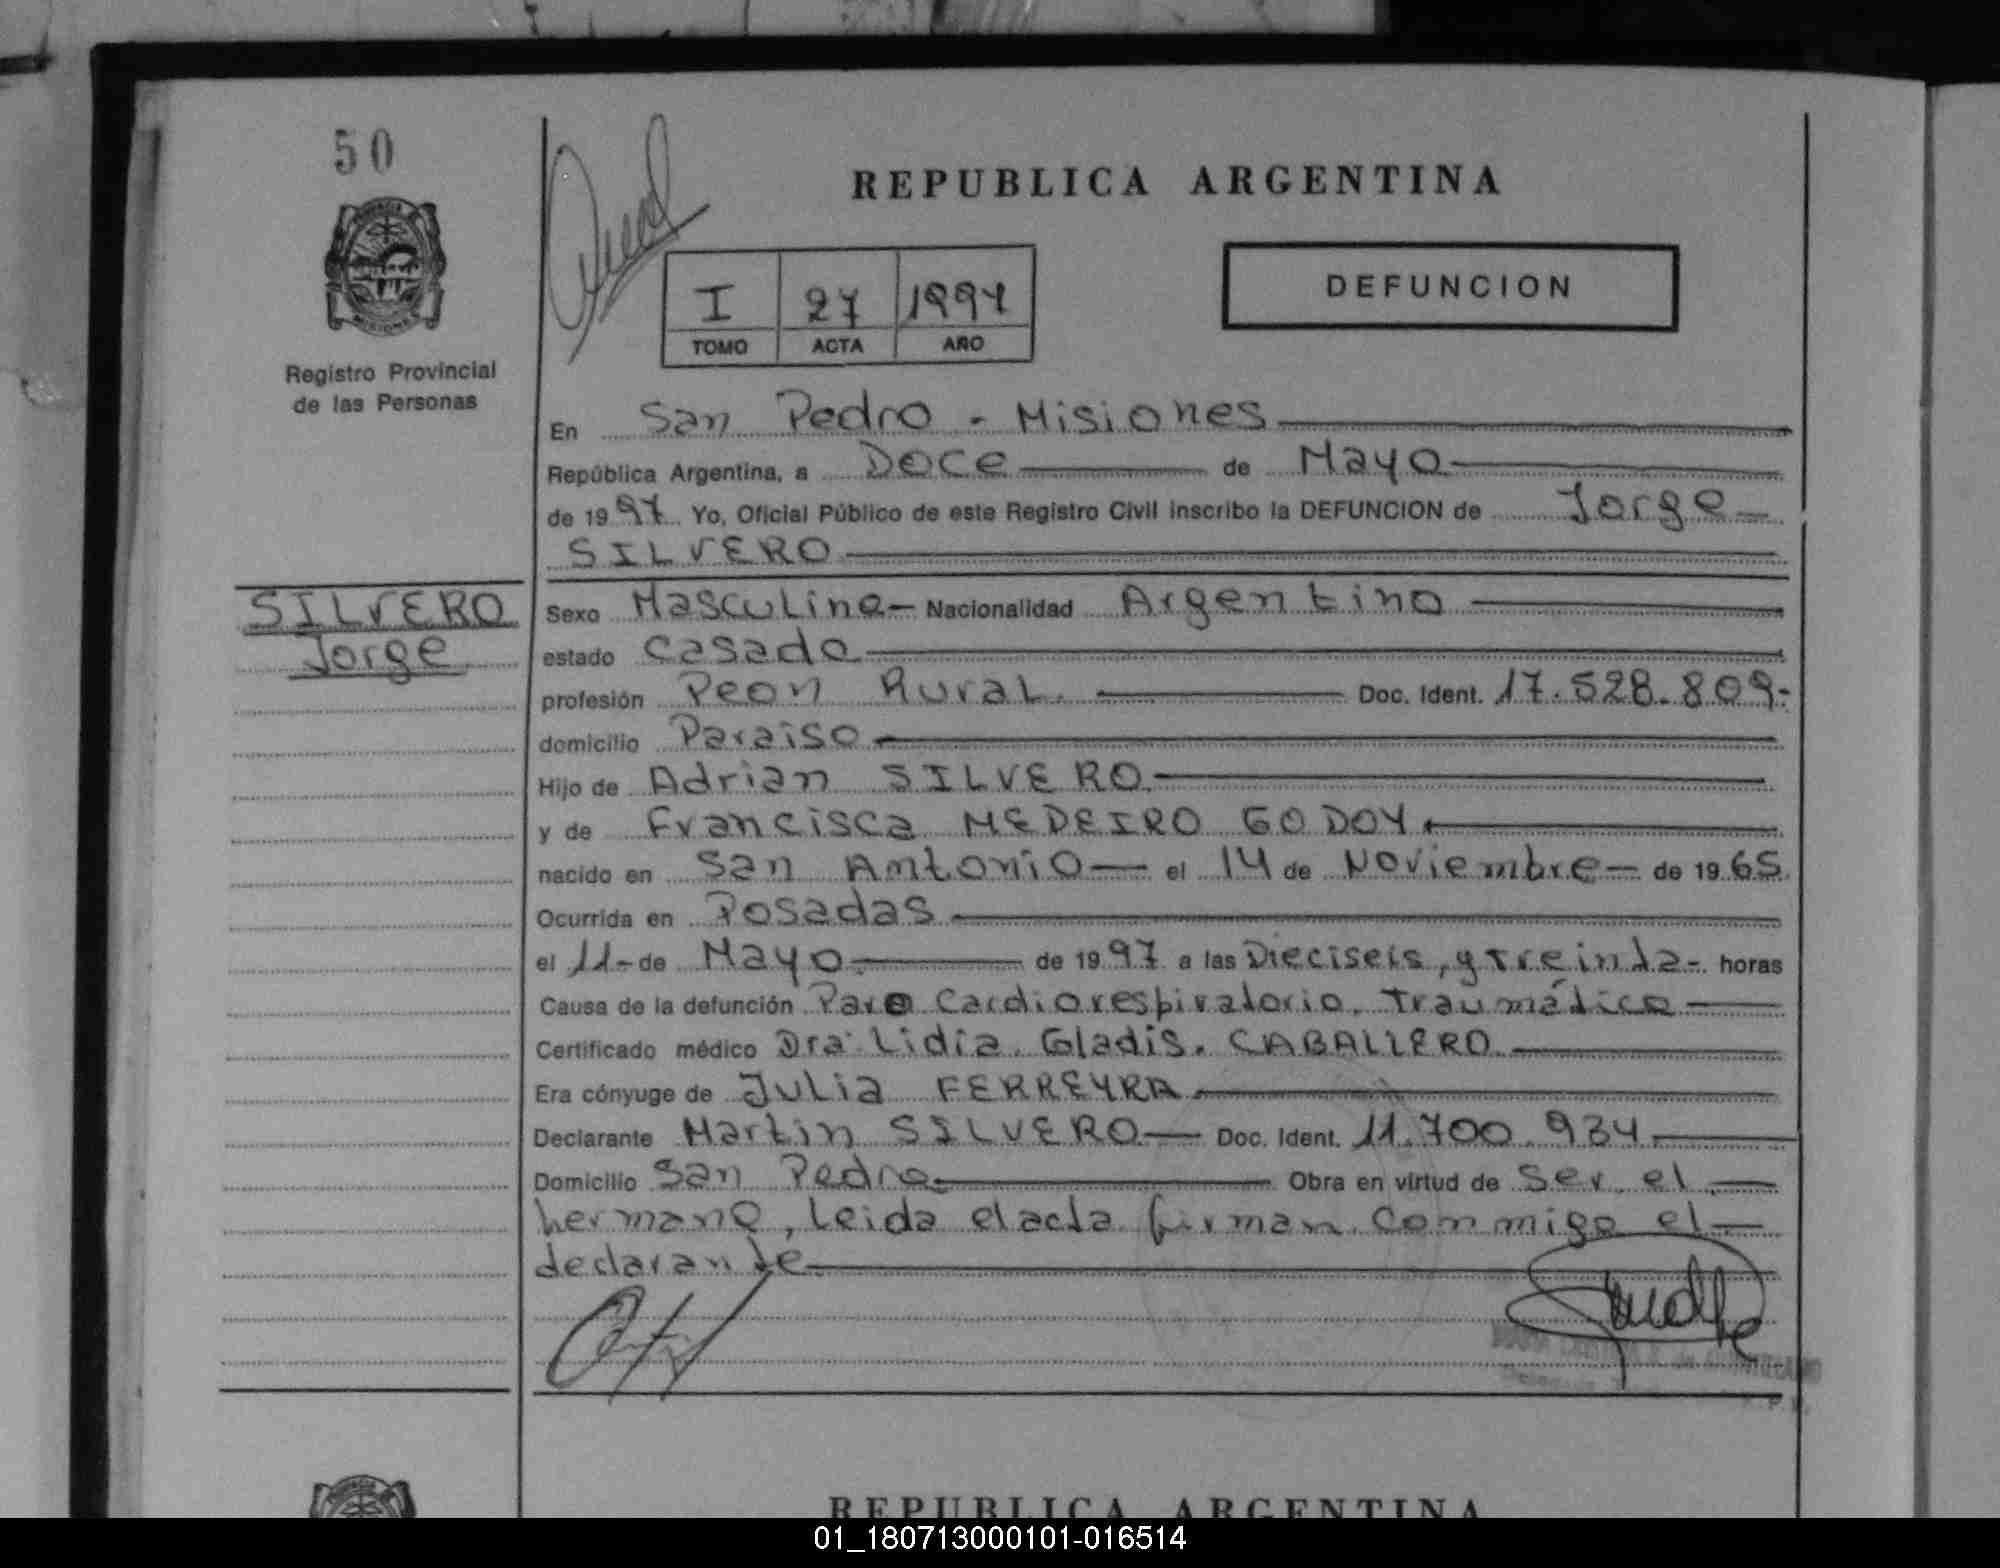 50
REPUBLICA ARGENTINA
I 27 1997
TOMO ACTA AÑO
DEFUNCION
PROVINCIA DE
MISIONES
Registro Provincial
de las Personas
En San Pedro - Misiones
República Argentina, a Doce de Mayo
de 1997 Yo, Oficial Público de este Registro Civil inscribo la DEFUNCION de Jorge
SILVERO
SILVERO
Jorge
Sexo Masculino Nacionalidad Argentino
estado casado
profesión Peon Rural. Doc. Ident. 17.528.809.-
domicilio Paraiso
Hijo de Adrian SILVERO
y de Francisca MEDEIRO GODOY.
nacido en San Antonio el 14 de Noviembre de 1965.
Ocurrida en Posadas
el 11- de Mayo. de 1997 a las Dieciseis, y treinta- horas
Causa de la defunción Paro Cardiorespiratorio. traumático
Certificado médico Dra. Lidia. Gladis. CABALLERO.
Era cónyuge de Julia FERREYRA
Declarante Martin SILVERO Doc. Ident. 11.700.934
Domicilio San Pedro. Obra en virtud de ser el
hermano, leida el acta firman conmigo el
declarante
REPUBLICA ARGENTINA
01_180713000101-016514